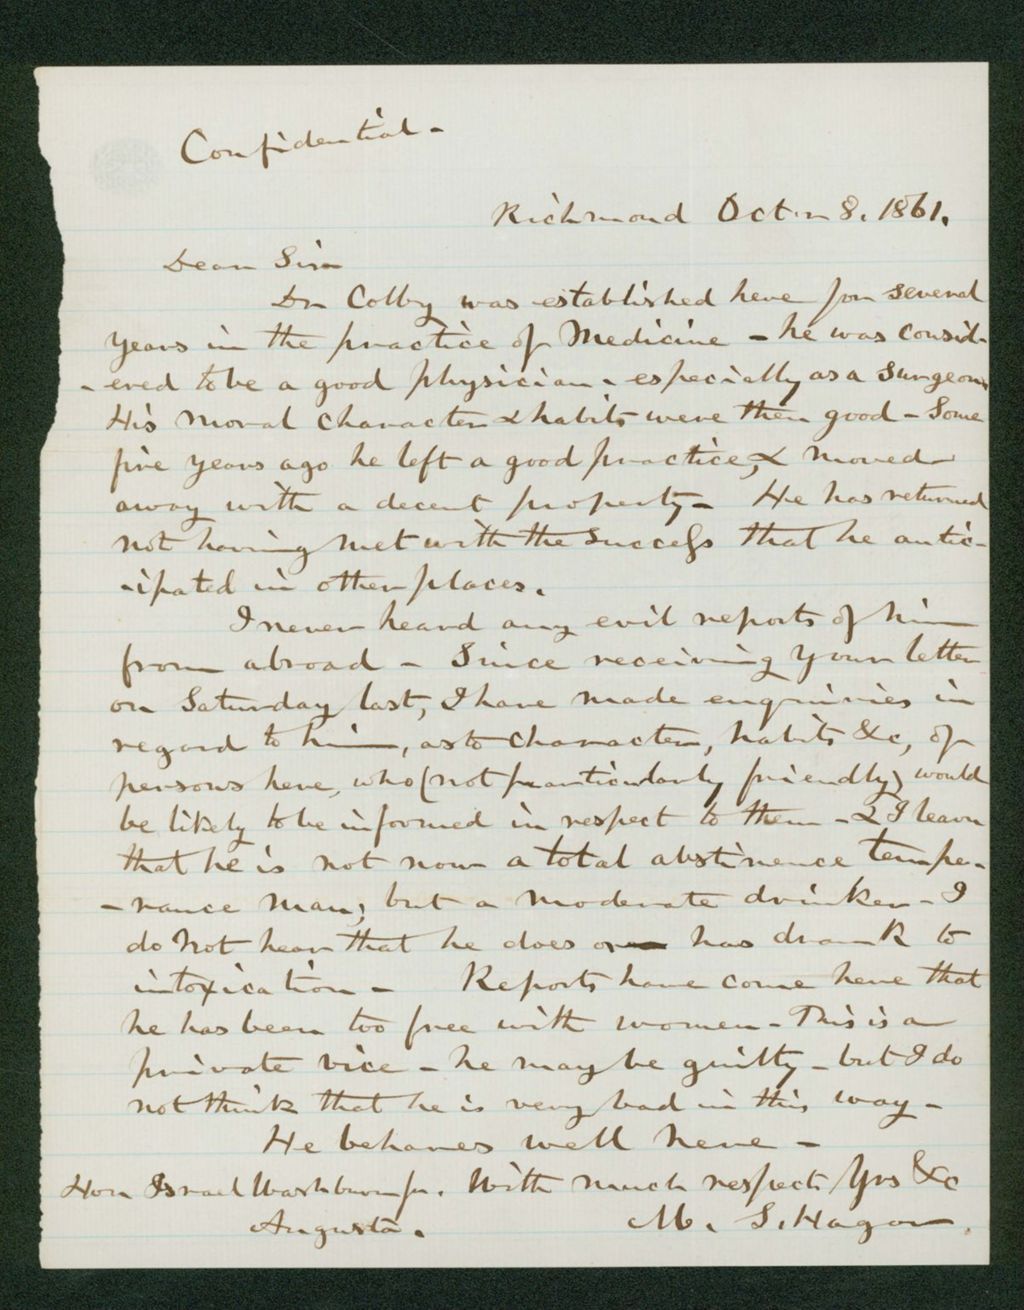 Confidential -
Richmond Octr 8. 1861.
Dear Sir
Dr Colby was established here for several
years in the practice of Medicine - he was consid-
-ered to be a good physician - especially as a Surgeon
His moral character & habits were then good - Some
five years ago he left a good practice, & moved
away with a decent property - He has returned
not having met with the success that he antic-
-ipated in other places.
I never heard any evil reports of him
from abroad - Since receiving your letter
on Saturday last, I have made enquiries in
regard to him, as to character, habits &c, of
persons here, who (not particularly friendly) would
be likely to be informed in respect to them - & I learn
that he is not now a total abstinence tempe-
-rance man; but a moderate drinker - I
do not hear that he does or has drank to
intoxication - Reports have come here that
he has been too free with women - This is a
private vice - he may be guilty - but I do
not think that he is very bad in this way -
He behaves well here -
Hon Israel Washburn jr. With much respect Yrs &c
Augusta. M. S. Hagar.